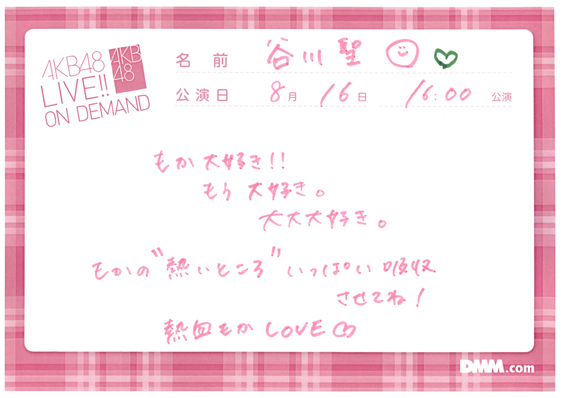 AKB48
LIVE!!
ON DEMAND
AKB
48
名前 谷川聖
公演日 8月 16日 16:00 公演
もか大好き!!
もう大好き。
大大大好き。
もかの"熱いところ"いっぱい吸収
させてね!
熱血もか LOVE
DMM.com